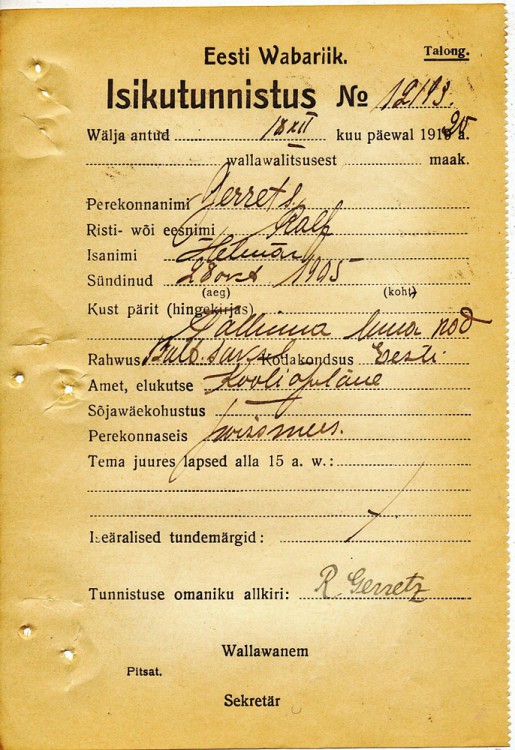 Eesti Wabariik. Talong.
Isikutunnistus No 12193.
Wälja antud 18 XII kuu päewal 1920 a.
wallawalitsusest maak.
Perekonnanimi Gerrets
Risti- wõi eesnimi Ralf
Isanimi Helmar
Sündinud 28 okt 1905
(aeg) (koht)
Kust pärit (hingekirjas)
Tallinna linna kod
Rahwus Balt. saksl. Kodakondsus Eesti.
Amet, elukutse Kooliõpilane
Sõjawäekohustus
Perekonnaseis poissmees.
Tema juures lapsed alla 15 a. w.:
Iseäralised tundemärgid:
Tunnistuse omaniku allkiri: R. Gerretz
Wallawanem
Pitsat.
Sekretär